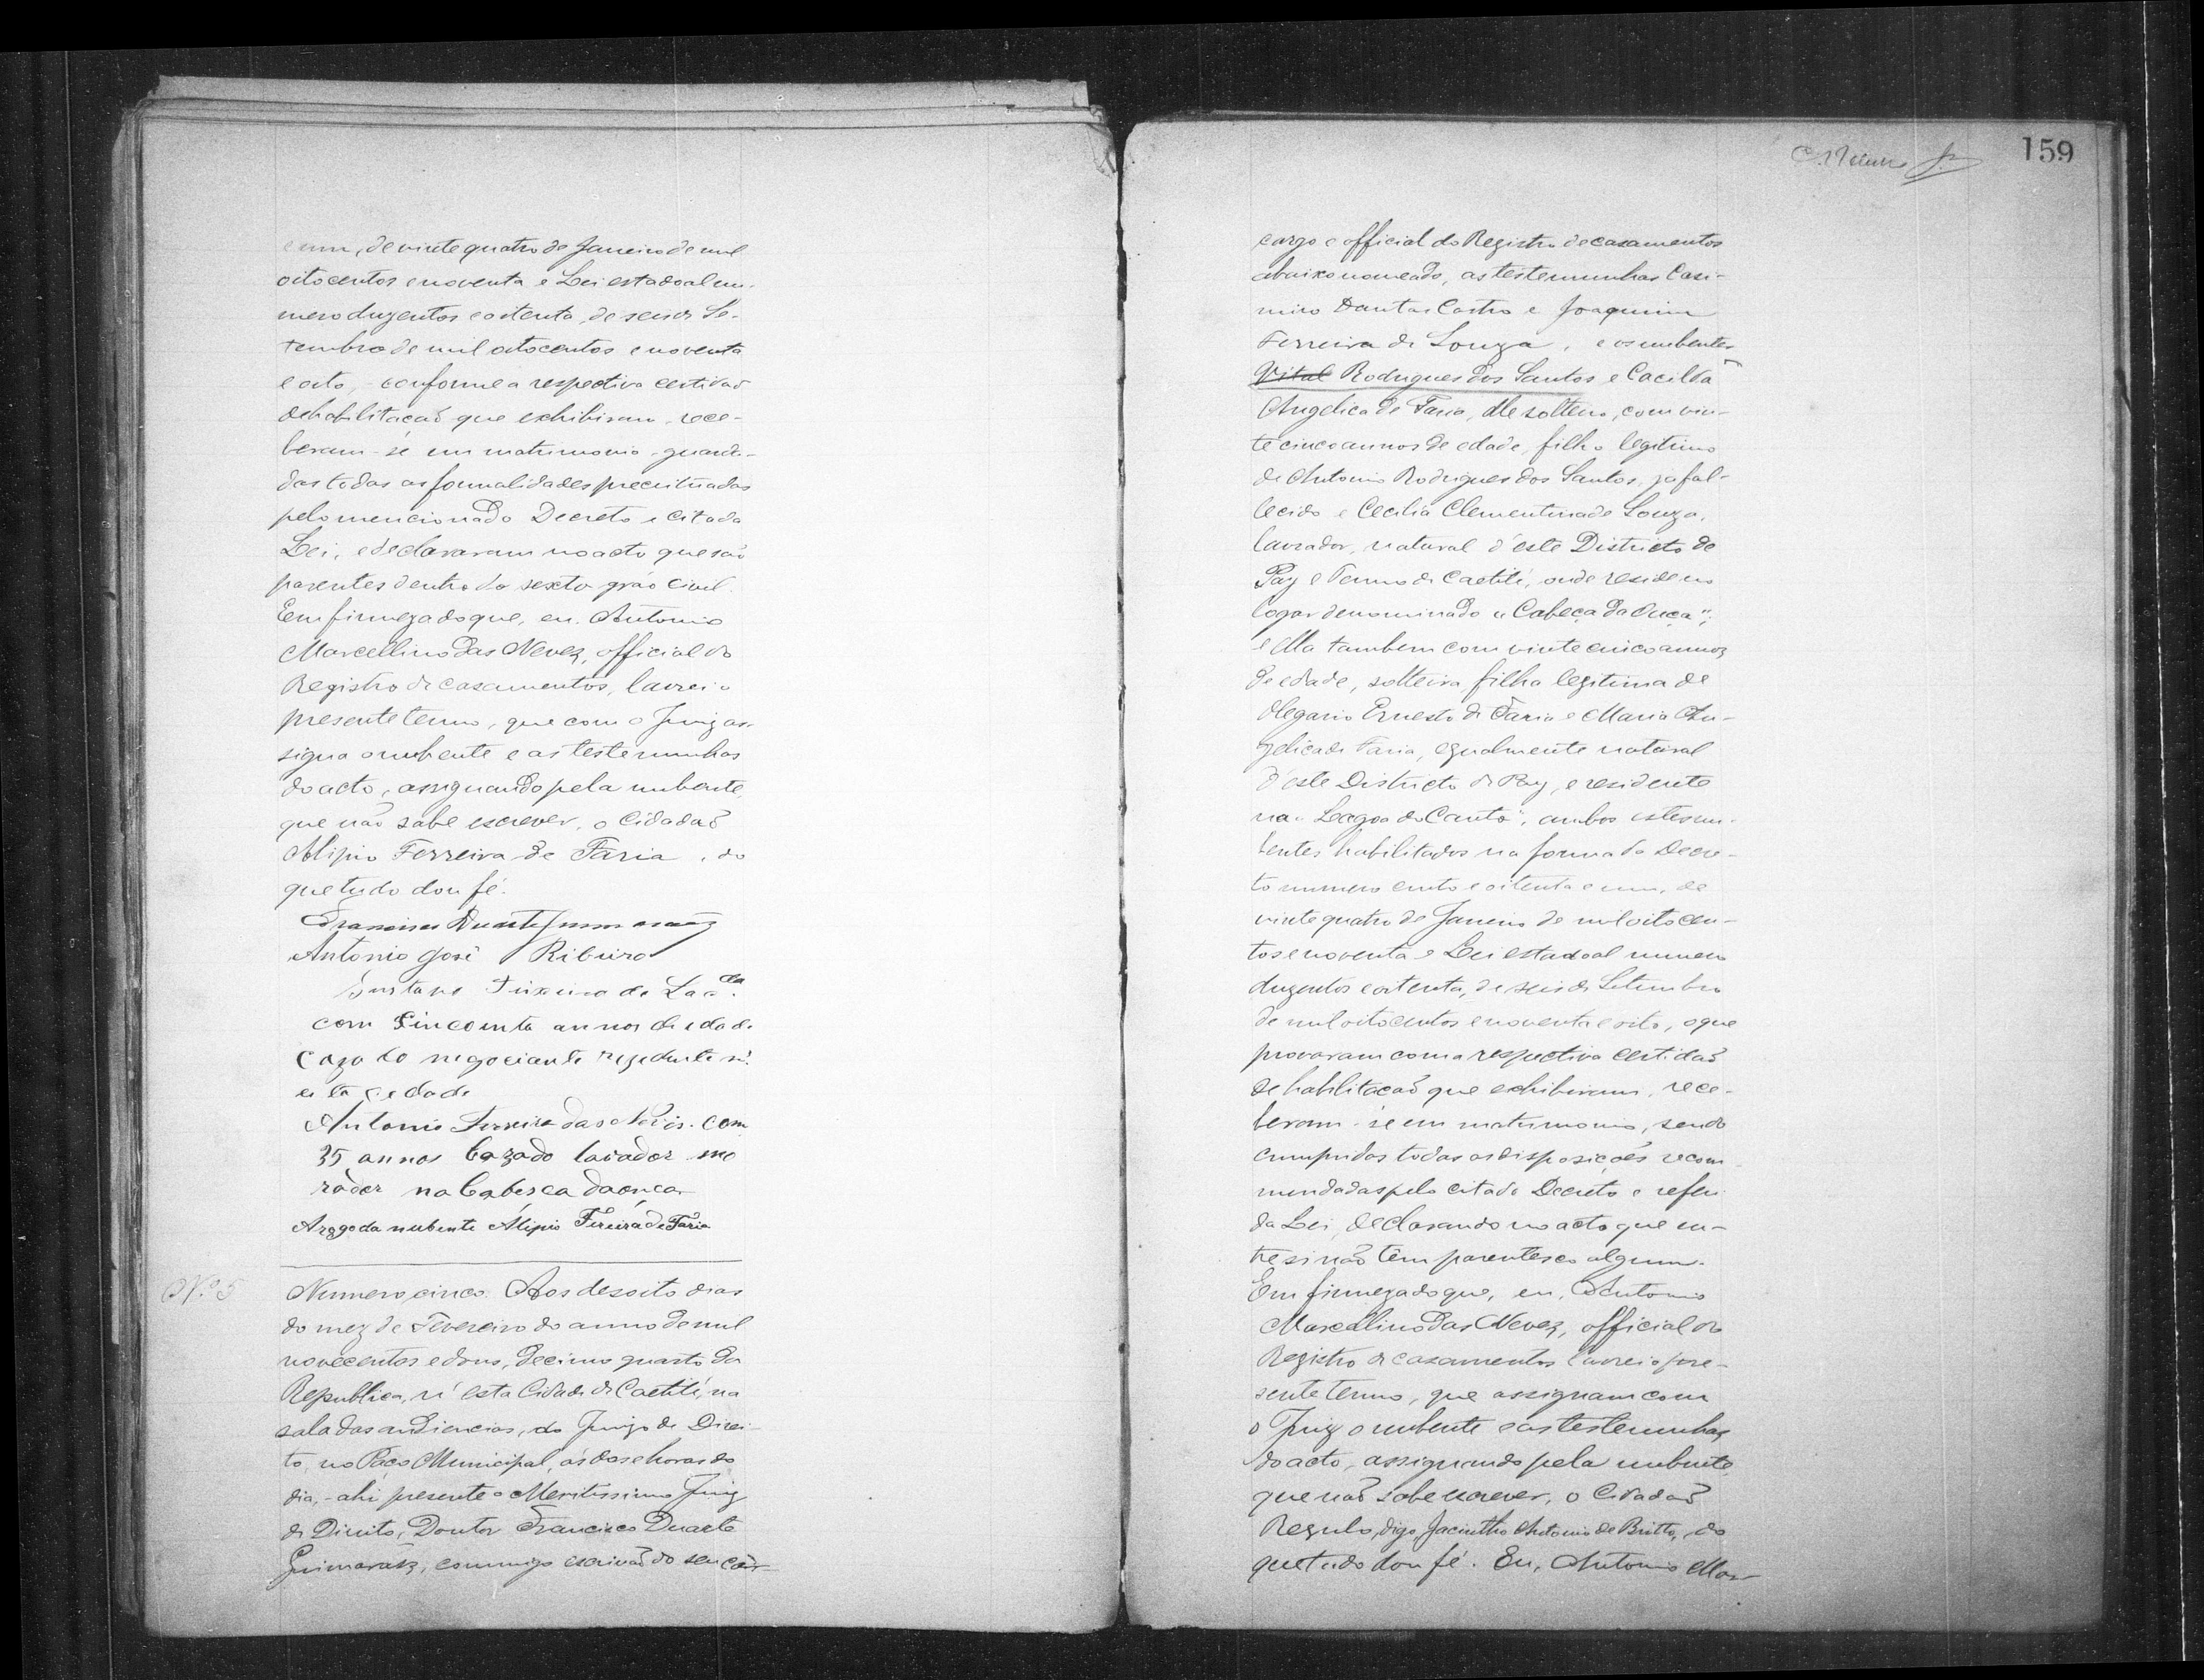 e um, de vinte quatro de Janeiro de mil
oitocentos e noventa e Lei estadoal nu-
mero duzentos e oitenta, de seis de Se-
tembro de mil oitocentos e noventa
e oito, conforme a respectiva certidaõ
de habilitaçaõ que exhibiram, rece-
beram-se em matrimonio, guarda-
das todas as formalidades preceituadas
pelo mencionado Decreto e citada
Lei, e declararam no acto que saõ
parentes dentro do sexto gráo civil.
Em firmeza do que, eu, Antonio
Marcellino das Neves, official do
Registro de casamentos, lavrei o
presente termo, que com o Juiz as-
signa o nubente e as testemunhas
do acto, assignando pela nubente,
que naõ sabe escrever, o Cidadaõ
Alipio Ferreira de Faria, do
que tudo dou fé.
Francisco Duarte Guimarães
Antonio José Ribeiro
Gustavo Teixeira de
com Sincoenta annos de edade
Cazado negociante rezedente n'
esta cedade
Antonio Ferreira das Neves. com
35 annos Cazado lavador mo
rador na Cabesca da onça
Arogo da nubente Alipio Ferreira de Faria
Nº 5
Numero cinco. Aos desoito dias
do mez de Fevereiro do anno de mil
novecentos e dous, decimo quarto da
Republica, n'esta Cidade de Caetité, na
sala das audiencias, do Juizo de Direi-
to, no Paço Municipal, ás dose horas do
dia, - ahi presente o Meritissimo Juiz
de Direito, Doutor Francisco Duarte
Guimarães, commigo escrivaõ do seu car-
159
cargo e official do Registro de casamentos
abaixo nomeado, as testemunhas Casi-
miro Dantas Castro e Joaquim
Ferreira de Souza, e os nubentes
Vital Rodrigues dos Santos e Cacilda
Angelica de Faria, elle solteiro, com vin-
te cinco annos de edade, filho legitimo
de Antonio Rodrigues dos Santos, ja fal-
lecido e Cecilia Clementina de Souza,
lavrador, natural d'este Districto de
Paz e Termo de Caetité, onde reside no
logar denominado "Cabeça da Onça";
e ella tambem com vinte cinco annos
de edade, solteira, filha legitima de
Olegario Ernesto de Faria e Maria An-
gelica de Faria, egualmente natural
d'este Districto de Paz, e residente
na "Lagoa do Canto", ambos estes nu-
bentes habilitados na forma do Decre-
to numero cento e oitenta e um, de
vinte quatro de Janeiro de mil oitocen-
tos e noventa e Lei estadoal numero
duzentos e oitenta, de seis de Setembro
de mil oitocentos e noventa e oito, o que
provaram com a respectiva certidaõ
de habilitaçaõ que exhibiram, rece-
beram-se em matrimonio, sendo
cumpridas todas as disposições recom-
mendadas pelo citado Decreto e referi-
da Lei, declarando no acto que en-
tre si naõ têm parentesco algum.
Em firmeza do que, eu, Antonio
Marcellino das Neves, official do
Registro de casamentos lavrei o pre-
sente termo, que assignam com
o Juiz o nubente e as testemunhas
do acto, assignando pela nubente,
que naõ sabe escrever, o Cidadaõ
Regulo, digo, Jacintho Antonio de Britto, do
que tudo dou fé. Eu, Antonio Mar-